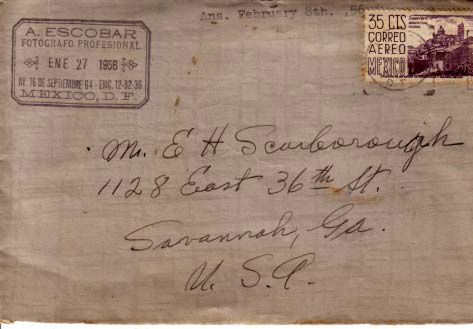 Ans. February 8th. 56
A. ESCOBAR
FOTOGRAFO PROFESIONAL
ENE 27 1956
AV. 16 DE SEPTIEMBRE 64 - ERIC. 12-32-36
MEXICO, D. F.
35 CTS
CORREO
AEREO
MEXICO
Mr. E H Scarborough
1128 East 36th St.
Savannah, Ga.
U. S. A.